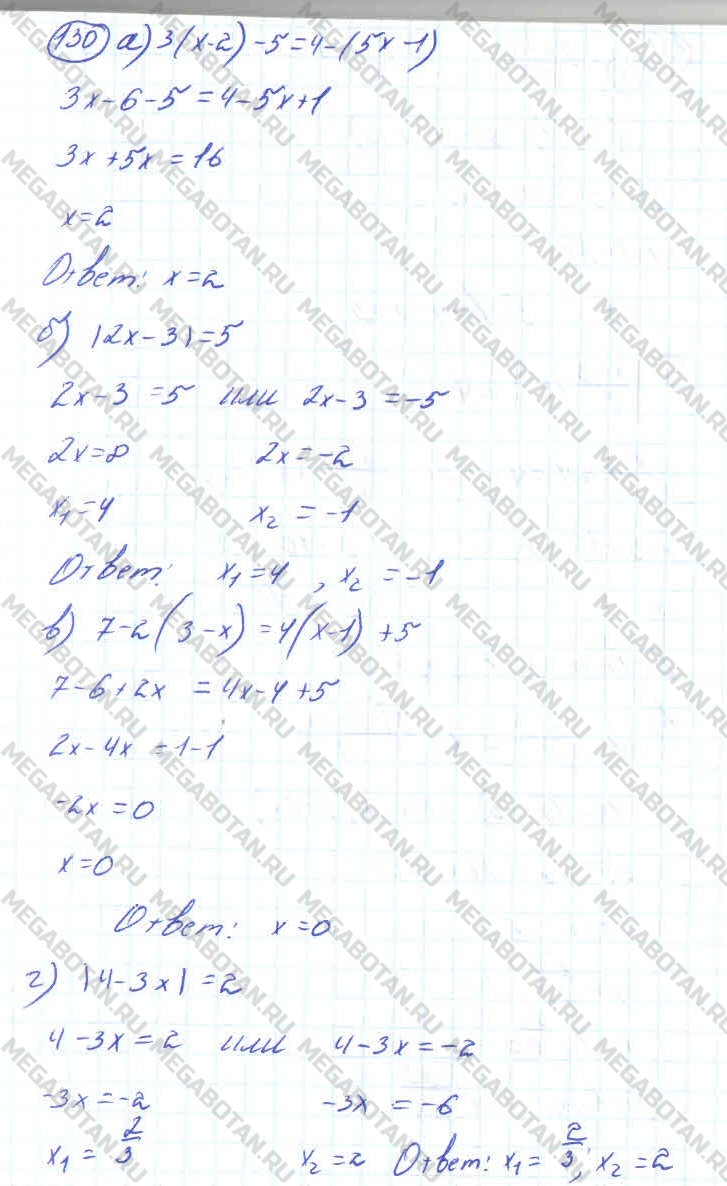 130 а) 3(x-2)-5=4-(5x-1)
3x-6-5=4-5x+1
3x+5x=16
x=2
Ответ: x=2
б) |2x-3|=5
2x-3=5 или 2x-3=-5
2x=8 2x=-2
x₁=4 x₂=-1
Ответ: x₁=4, x₂=-1
в) 7-2(3-x)=4(x-1)+5
7-6+2x=4x-4+5
2x-4x=1-1
-2x=0
x=0
Ответ: x=0
г) |4-3x|=2
4-3x=2 или 4-3x=-2
-3x=-2 -3x=-6
x₁=2/3 x₂=2 Ответ: x₁=2/3; x₂=2
MEGABOTAN.RU